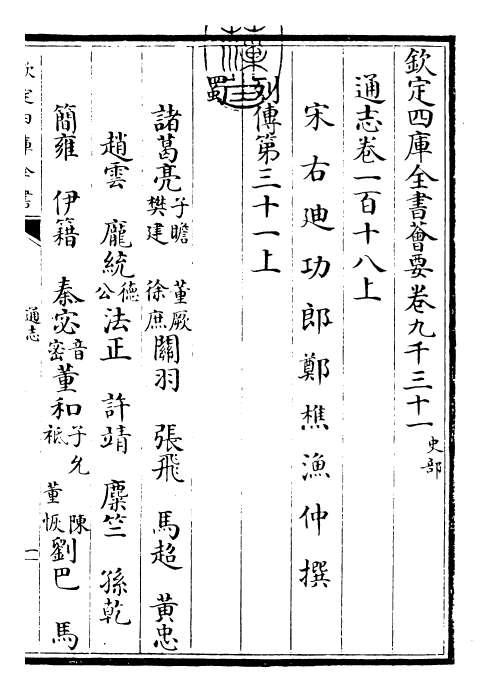 欽定四庫全書薈要卷九千三十一 史部
通志卷一百十八上
宋右迪功郎鄭樵漁仲撰
列傳第三十一上
蜀
諸葛亮 子瞻 董厥 樊建 徐庶 關羽 張飛 馬超 黃忠
趙雲 龐統 德公 法正 許靖 麋竺 孫乾
簡雍 伊籍 秦宓 音密 董和 子允 陳祗 董恢 劉巴 馬
欽定四庫全書
通志
一